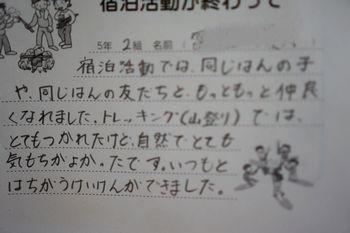 宿泊活動が終わって
5年 2組 名前
宿泊活動では、同じはんの子
や、同じはんの友だちと、もっともっと仲良
くなれました。トレッキング(山登り)では、
とてもつかれたけど、自然でとても
気もちがよかったです。いつもと
はちがうけいけんができました。